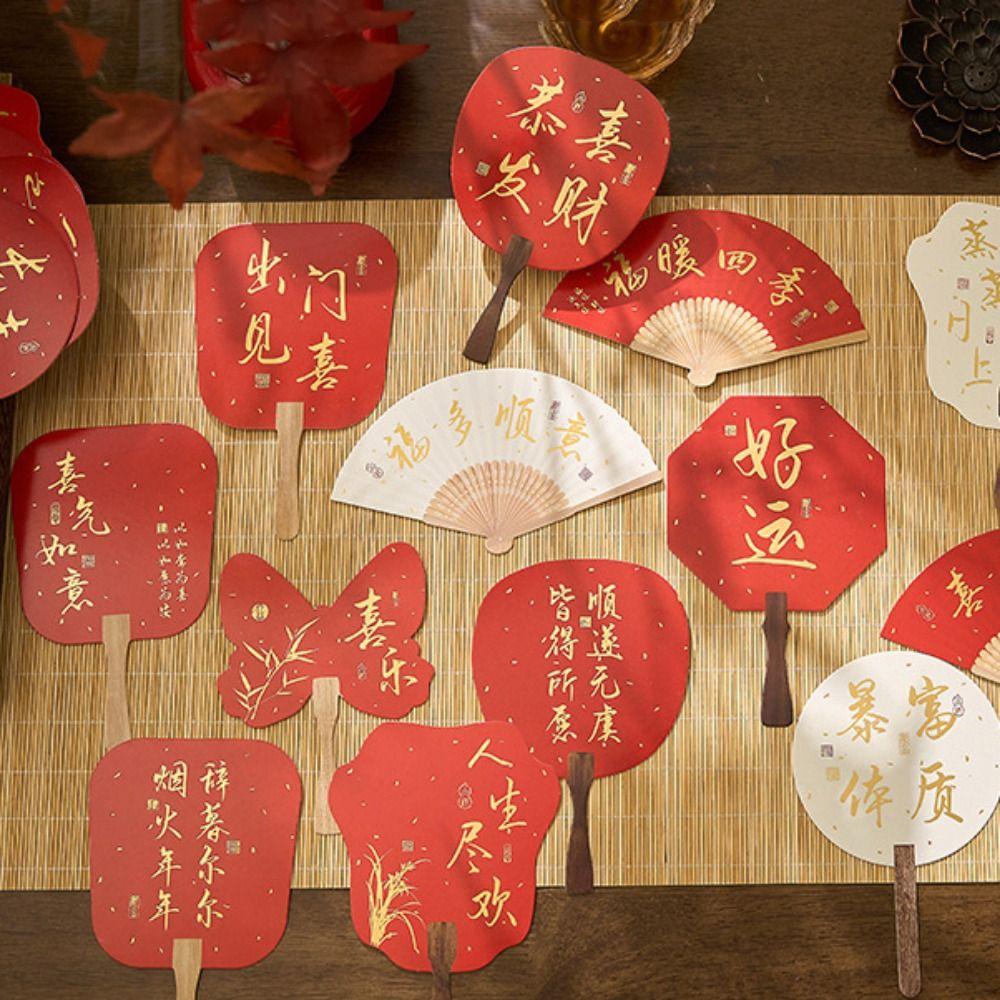 恭喜
发财
福暖四季
出门
见喜
福多顺意
蒸蒸
日上
喜气
如意
好运
喜乐
顺遂无虞
皆得所愿
喜
暴富
体质
辞暮尔尔
烟火年年
人生
尽欢